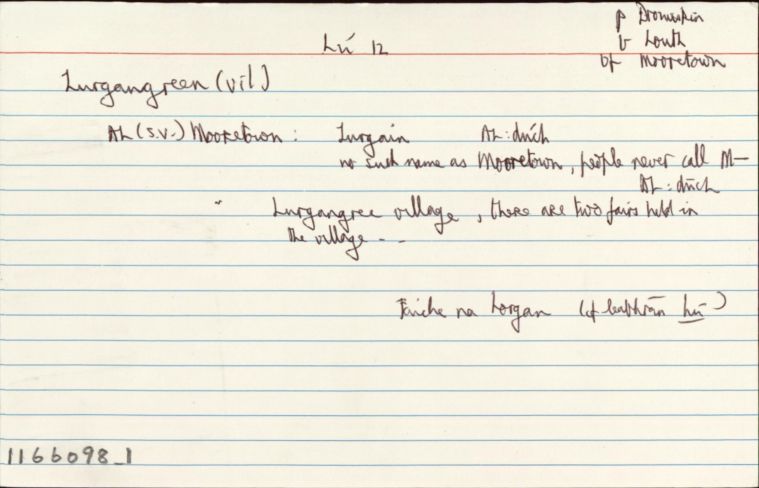 Lú 12
p Dromiskin
b Louth
bf Mooretown
Lurgangreen (vil)
AL (s.v.) Mooretown : Lurgain AL: dúch
no such name as Mooretown, people never call M—
AL: dúch
" Lurgangree village, there are two fairs held in
the village - -
Faiche na Lorgan (cf leabhrán Lú)
1166098_1